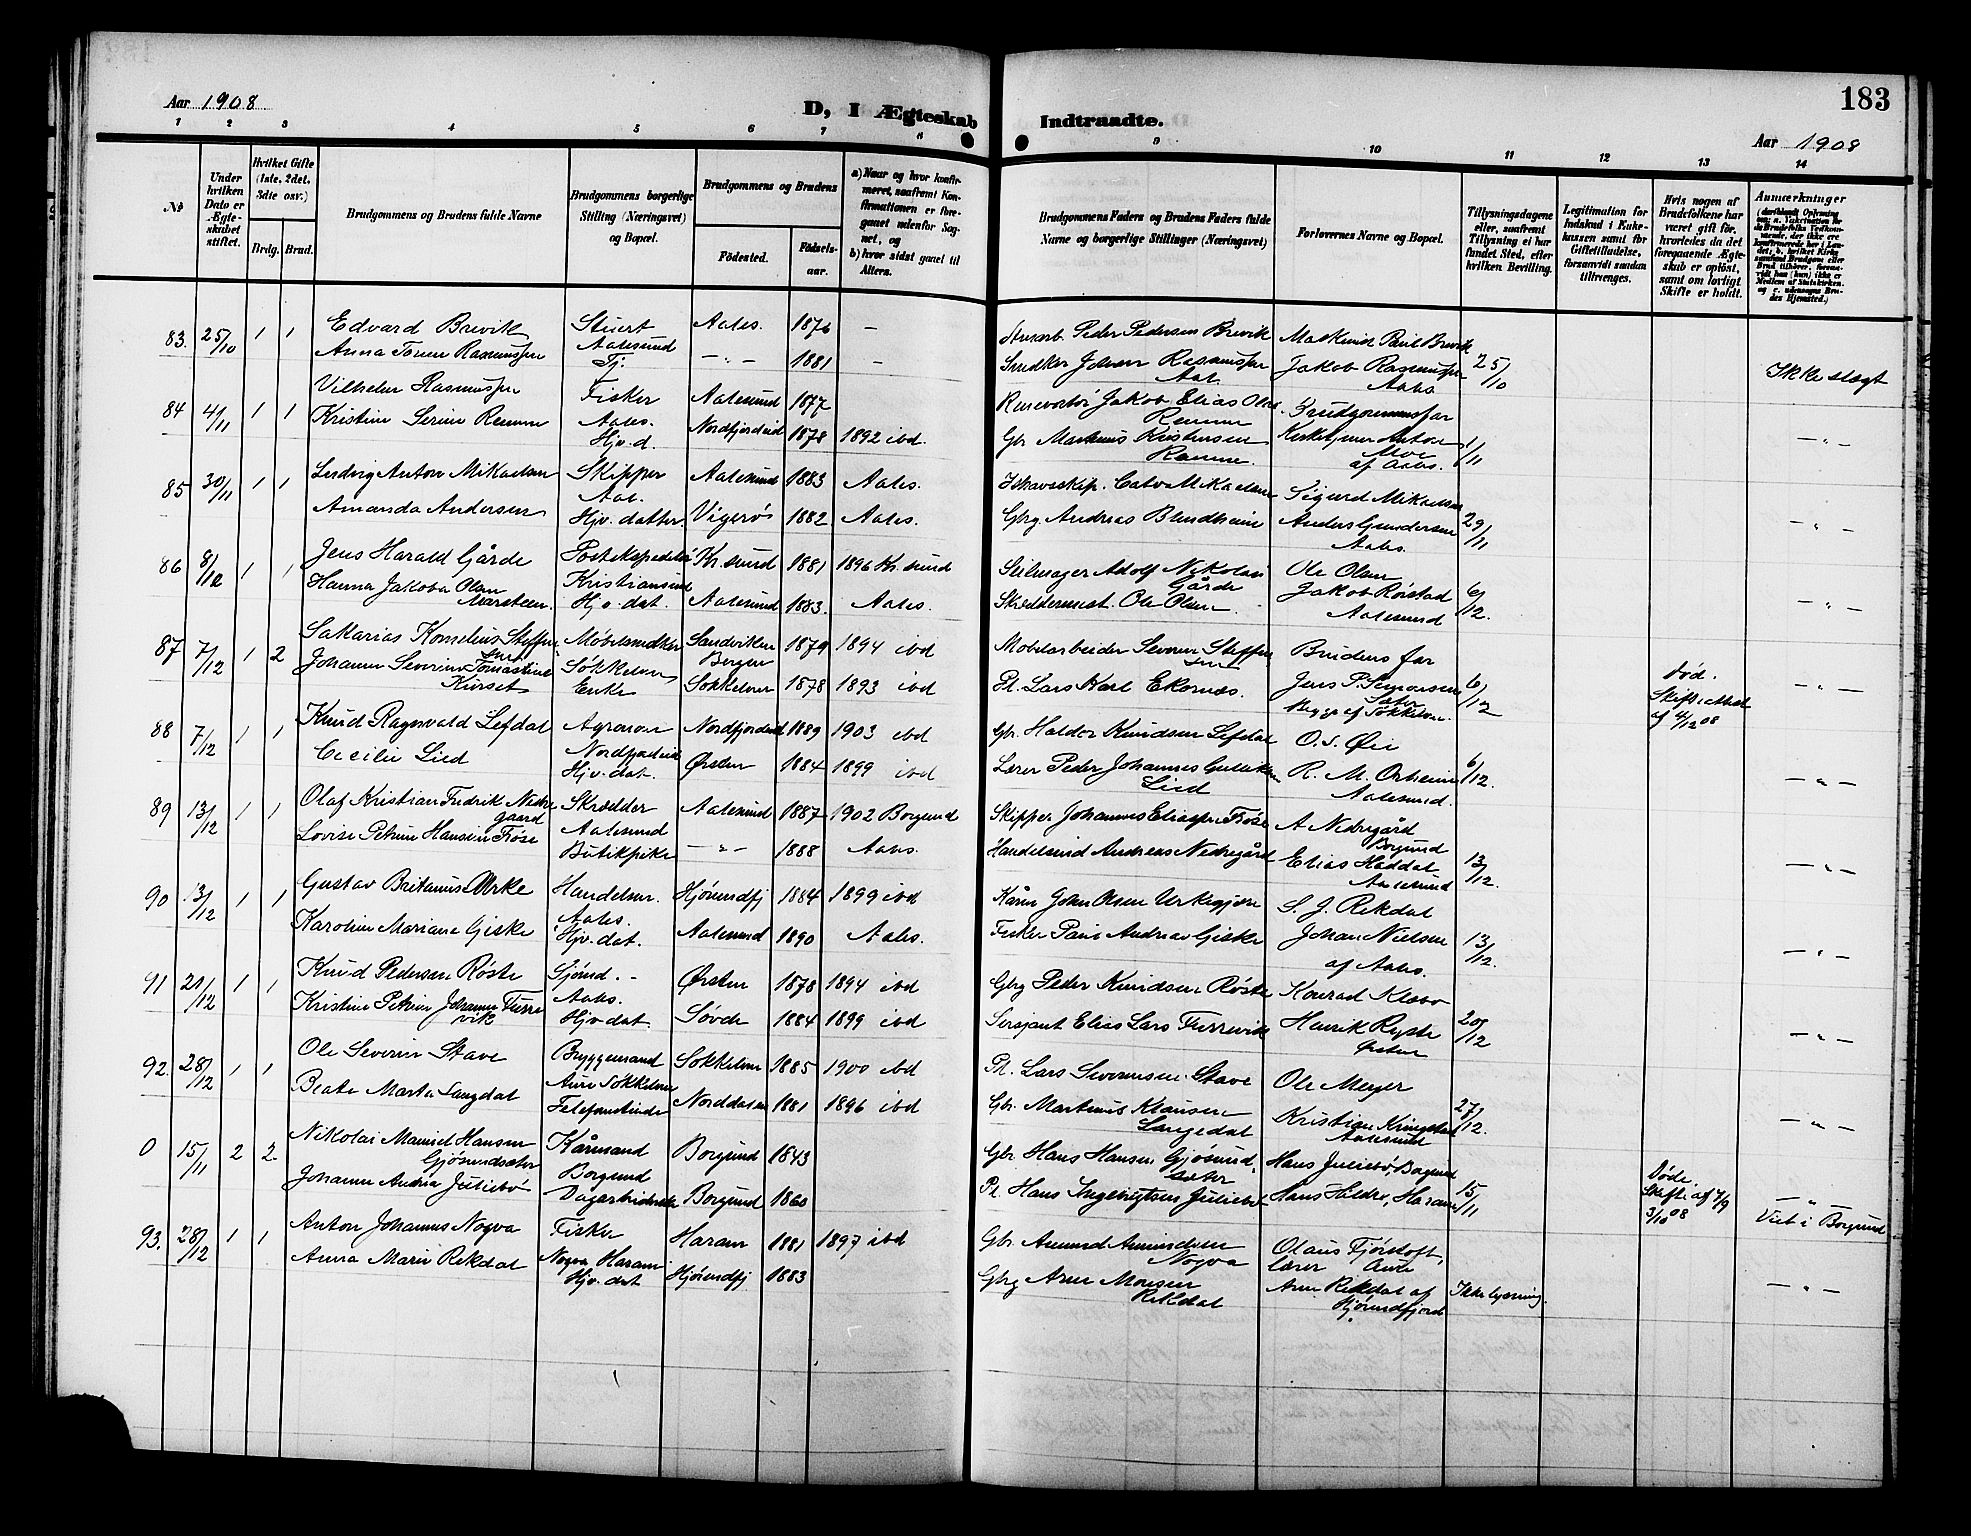 183
Aar 1908
D, I Ægteskab Indtraadte.
Aar 1908
1 2 3 4 5 6 7 8 9 10 11 12 13 14
№
Under hvilken Dato er Ægteskabet stiftet.
Hvilket Gifte (1ste, 2det, 3die osv.)
Brdg. Brud.
Brudgommens og Brudens fulde Navne
Brudgommens borgerlige Stilling (Næringsvei) og Bopæl.
Brudgommens og Brudens
Fødested.
Fødselsaar.
a) Naar og hvor konfirmeret, saafremt Konfirmationen er foregaaet udenfor Sognet, og
b) hvor sidst gaaet til Alters.
Brudgommens Faders og Brudens Faders fulde Navne og borgerlige Stillinger (Næringsvei)
Forlovernes Navne og Bopæl.
Tillysningsdagene eller, saafremt Tillysning ei har fundet Sted, efter hvilken Bevilling.
Legitimation for Indskud i Enkekassen samt for Giftetilladelse, forsaavidt saadan tiltrænges.
Hvis nogen af Brudefolkene har været gift før, hvorledes da det foregaaende Ægteskab er opløst, samt om lovligt Skifte er holdt.
Anmærkninger
83. 25/10 1 1 Edvard Brevik Stuert Aales. 1876 – Peder Pedersen Brevik Maskinist Paul Brevik
Aalesund
Anna Rasmussen Tj. –"– 1881 – Snedker Johan Rasmussen Jakob Rasmussen 25/10 Ikke slægt
Aal. Aales
84 4/11 1 1 Vilhelm Rasmussen Fisker Aalesund 1877 Jakob Elias Brudgommens far
Remme
Kristine Serine Remme Aales. Hjv.d. Nordfjordeid 1878 1892 ibd. Gbr. Martinus Kristensen Kirketjener Anton Moe 1/11 –"–
Remme. af Aales.
85 30/11 1 1 Ludvig Anton Mikaelsen Skipper Aalesund 1883 Aales. Ishavsskip. Mikaelsen Sigurd Mikaelsen
Aal.
Amanda Andersen Hjv. datter Vigerö 1882 Aales. Gbrg Andreas Blindheim Anders Gundersen 29/11 –"–
Aales.
86 8/12 1 1 Jens Harald Gårde Kr.sund 1881 1896 Kr.sund Seilmager Adolf Nikolai Ole Olsen
Kristiansund Gårde
Hanna Jakoba Olsen Hjv. dat. Aalesund 1883. Aales. Skræddermest. Ole Olsen Jakob Rørstad 6/12. –"–
Aalesund
87 7/12 1 2 Sakarias Kornelius Steffensen Møbelsnedker Sandviken 1879 1894 ibd Møbelarbeider Severin Steffensen Brudens far
Søkkelven Bergen
Johanne Severine Tomastine Enke Søkkelven 1878 1893 ibd Pl. Lars Karl Ekornæs. Jens P. Simonsen 6/12 død. –"–
Kurset Begge af Søkkelven. Skifteattest af 4/12 08
88 7/12 1 1 Knud Ragnvald Lefdal Agronom Nordfjordeid 1889 1903 ibd Gbr. Haldor Knudsen Lefdal O. S. Øie
Nordfjordeid
Cecilie Lied Hjv. dat. Ørsten 1884 1899 ibd Lærer Peder Johannes R. M. Orheim 6/12. –"–
Lied Aalesund.
89 13/12 1 1 Olaf Kristian Fredrik Nedregaard Skrædder Aalesund 1887 1902 Borgund Skipper Johannes Eliassen Frøse A Nedregård
Aalesund Borgund
Lovise Petrine Hansine Frøse Butikpike –"– 1888 Aales. Andreas Nedregård Elias Haddal 13/12. –"–
Aalesund
90 13/12 1 1 Gustav Britanus Urke Handelsm. Hjørundfj 1884 1899 ibd Kårm John Olsen Urkegjære S. J. Rekdal
Aales.
Karoline Mariane Giske Hjv. dat. Aalesund 1890 Aales. Fisker Paul Andreas Giske Johan Nielsen 13/12. –"–
af Aales.
91 21/12 1 1 Knud Pedersen Røste Sjømd. – Ørsten 1878 1894 ibd Gbrg Peder Knudsen Røste Konrad Klebo
Aales.
Kristine Petrine Johanne Furrevik Hjv. dat. Søvde 1884 1899 ibd Sersjant Elias Lars Furrevik Henrik Ryste 20/12 –"–
Ørsten
92. 28/12 1 1 Ole Severin Stave Bryggemand Søkkelven 1885 1900 ibd Pl. Lars Severinsen Stave Ole Meyer
Aure Søkkelven
Beate Marta Langdal Norddalen 1881 1896 ibd Gbr. Martinus Klausen Kristian 27/12. –"–
Langedal Aalesund
0 15/11 2 2 Nikolai Hansen Kårmand Borgund 1843 Gbr. Hans Hansen Gjøsund- Hans Juliebö, Borgund
Gjøsundsæter Borgund sæter
Johanne Andrea Juliebö Borgund 1860 Pl. Hans Ingebrigtsen Juliebö Hans Hildre, Haram 15/11 Døde. Skifte af 7/9 3/10 08 –"–
Viet i Borgund
93. 28/12 1 1 Anton Johannes Nogva Fisker Haram 1881 1897 ibd Gbr Amund Amundsen Olaus Fjørtoft,
Nogva Haram Nogva lærer
Anna Marie Rekdal Hjv. dat Hjørundfj 1883 Gbrg Arne Monsen Arne Rekdal af Ikke lysning. –"–
Rekdal Hjørundfjord